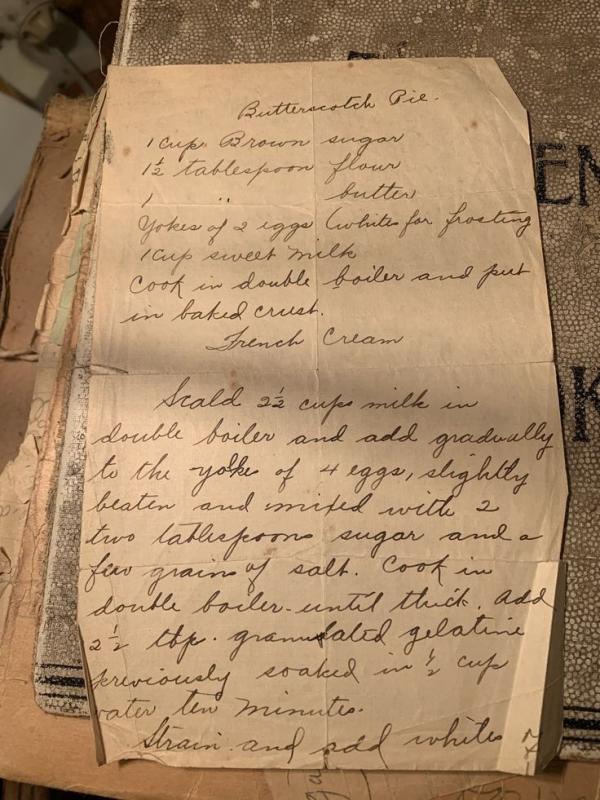 Butterscotch Pie.
1 cup Brown sugar
1½ tablespoon flour
1 " butter
Yokes of 2 eggs (whites for frosting
1 cup sweet milk
Cook in double boiler and put
in baked crust.
French Cream
Scald 2½ cups milk in
double boiler and add gradually
to the yolks of 4 eggs, slightly
beaten and mixed with 2
two tablespoons sugar and a
few grains of salt. Cook in
double boiler until thick. Add
2½ tbp. granulated gelatine
previously soaked in ½ cup
water ten minutes.
Strain and add whites
EN
K